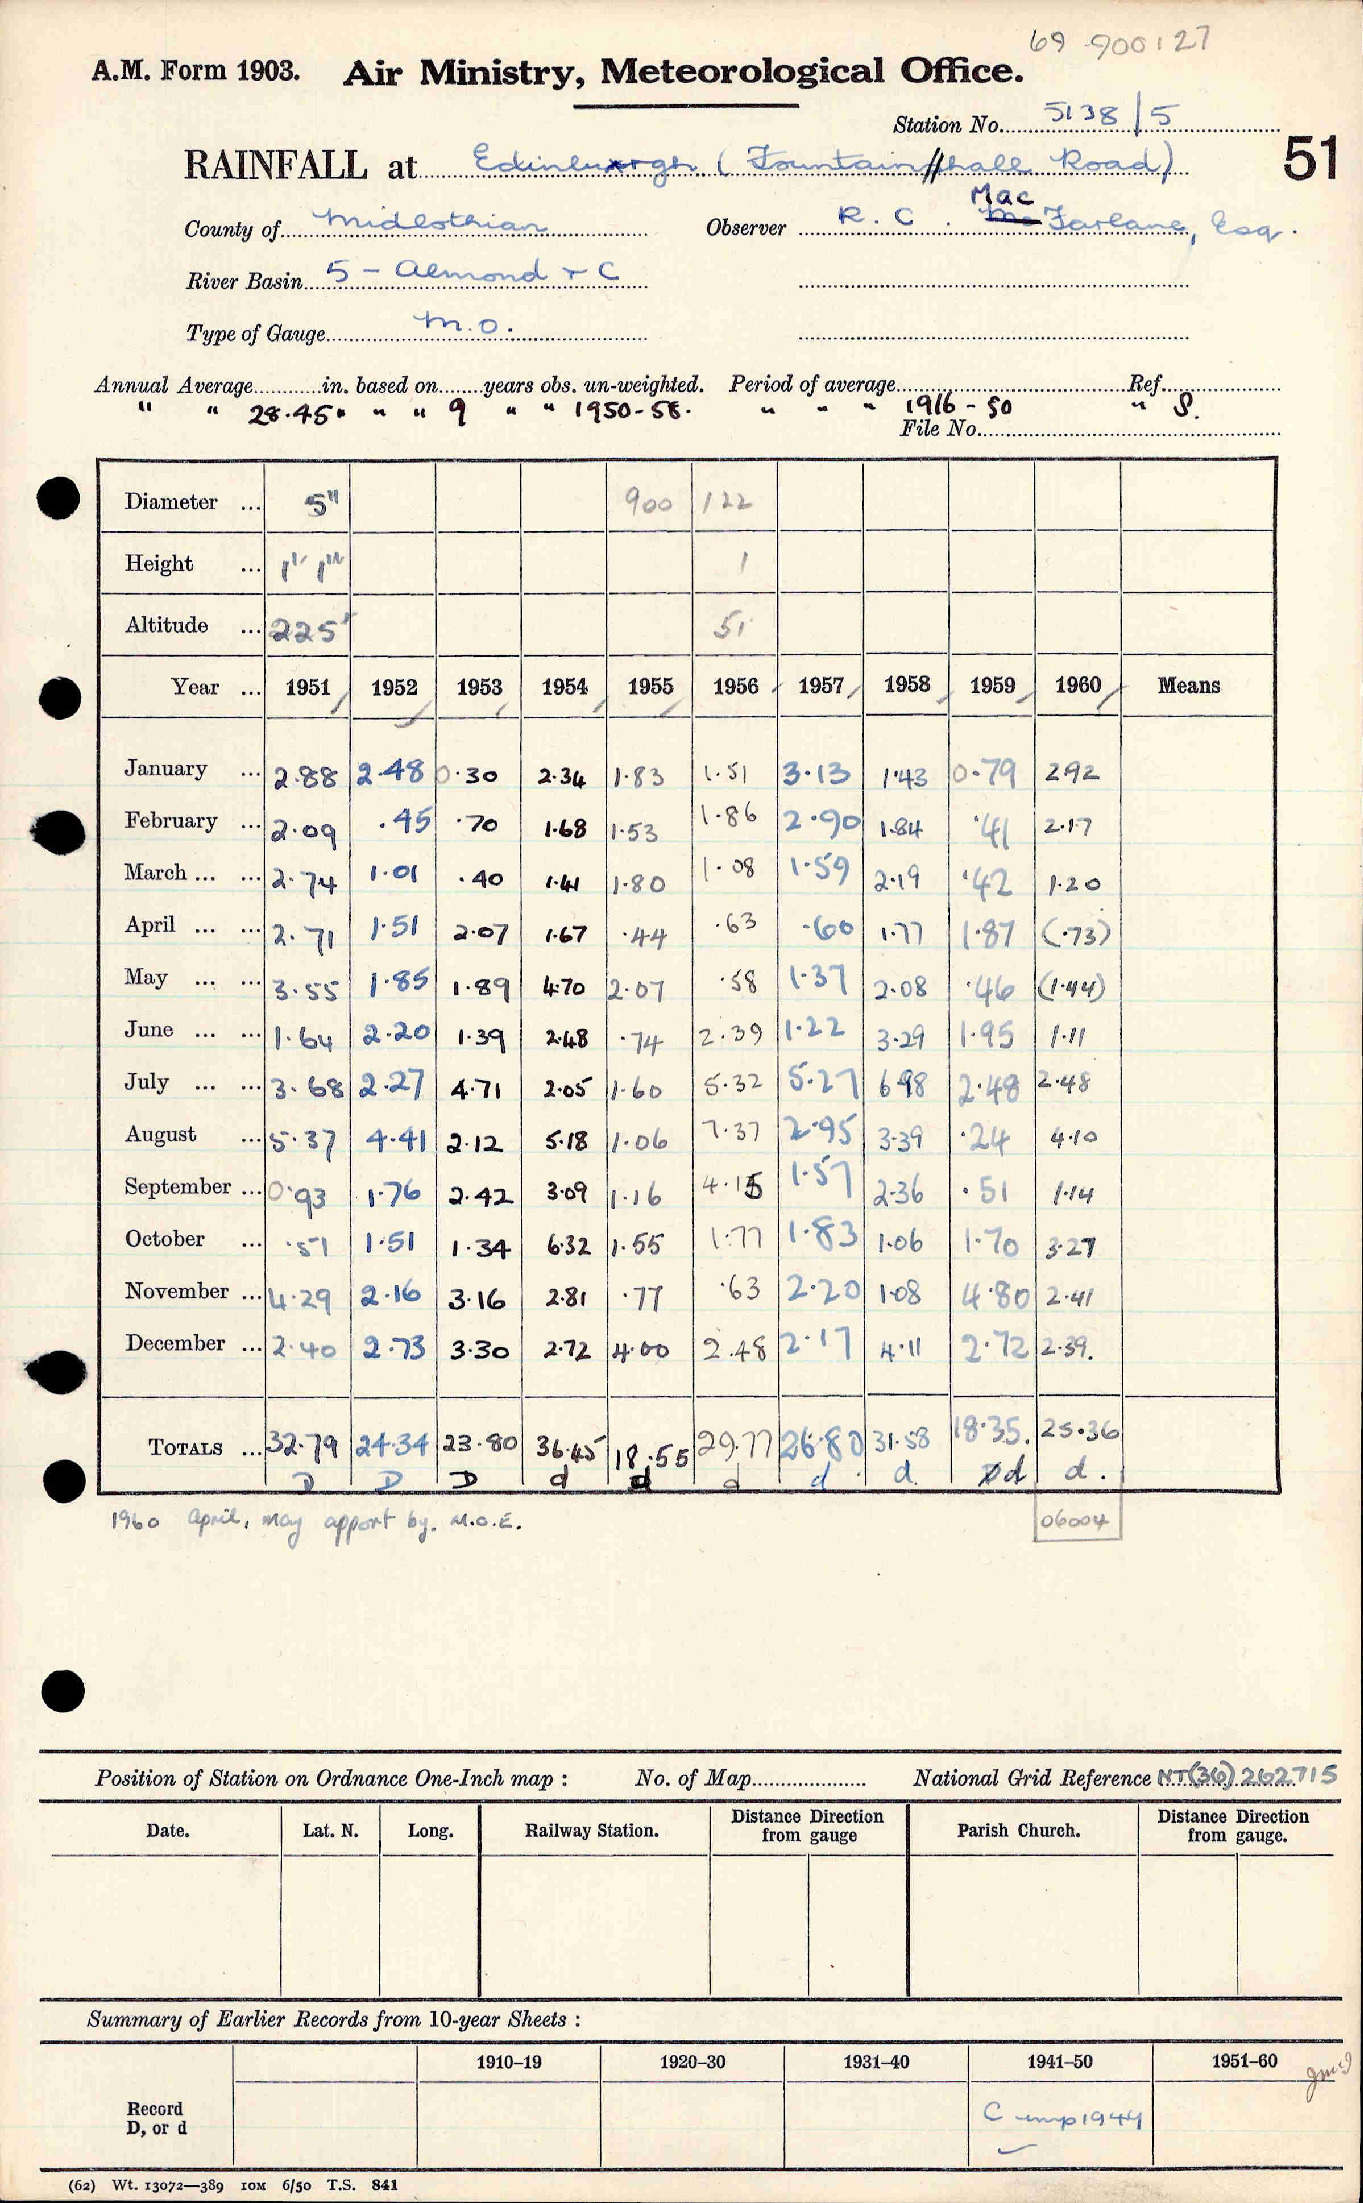 69 900127
A.M. Form 1903. Air Ministry, Meteorological Office.
Station No. 5138/5
51
RAINFALL at Edinburgh (Fountainhall Road)
County of Midlothian Observer R. C. MacFarlane, Esq.
River Basin 5 - Almond + C
Type of Gauge M.O.
Annual Average in. based on years obs. un-weighted. Period of average Ref.
" " 28.45" " " 9 " " 1950-58. " " " 1916-50 " S.
File No.
Diameter ... 5" 900 122
Height ... 1' 1" 1
Altitude ... 225' 51
Year ... 1951 1952 1953 1954 1955 1956 1957 1958 1959 1960 Means
January ... 2.88 2.48 0.30 2.34 1.83 1.51 3.13 1.43 0.79 2.92
February ... 2.09 .45 .70 1.68 1.53 1.86 2.90 1.84 .41 2.17
March ... ... 2.74 1.01 .40 1.41 1.80 1.08 1.59 2.19 .42 1.20
April ... ... 2.71 1.51 2.07 1.67 .44 .63 .60 1.77 1.87 (.73)
May ... ... 3.55 1.85 1.89 4.70 2.07 .58 1.37 2.08 .46 (1.44)
June ... ... 1.64 2.20 1.39 2.48 .74 2.39 1.22 3.29 1.95 1.11
July ... ... 3.68 2.27 4.71 2.05 1.60 5.32 5.27 6.98 2.48 2.48
August ... 5.37 4.41 2.12 5.18 1.06 7.37 2.95 3.39 .24 4.10
September ... 0.93 1.76 2.42 3.09 1.16 4.15 1.57 2.36 .51 1.14
October ... .51 1.51 1.34 6.32 1.55 1.77 1.83 1.06 1.70 3.27
November ... 4.29 2.16 3.16 2.81 .77 .63 2.20 1.08 4.80 2.41
December ... 2.40 2.73 3.30 2.72 4.00 2.48 2.17 4.11 2.72 2.39.
TOTALS ... 32.79 24.34 23.80 36.45 18.55 29.77 26.80 31.58 18.35. 25.36
D D D d d d d d. d d.
1960 April, May apport by. M.O.E. 06004
Position of Station on Ordnance One-Inch map : No. of Map National Grid Reference NT(36) 262715
Date. Lat. N. Long. Railway Station. Distance Direction from gauge Parish Church. Distance Direction from gauge.
Summary of Earlier Records from 10-year Sheets :
1910–19 1920–30 1931–40 1941–50 1951–60
Record
D, or d
C 1944
(62) Wt. 13072—389 10M 6/50 T.S. 841